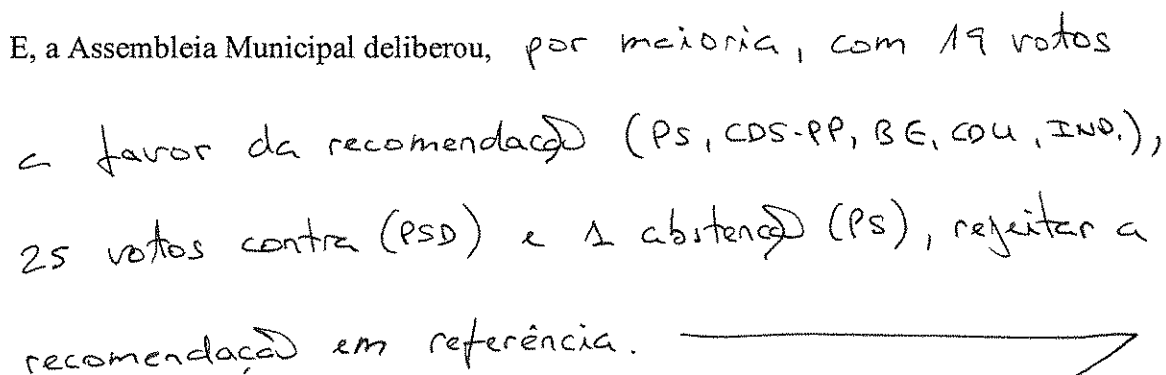 E, a Assembleia Municipal deliberou, por maioria, com 19 votos
a favor da recomendação (PS, CDS-PP, BE, CDU, IND.),
25 votos contra (PSD) e 1 abstenção (PS), rejeitar a
recomendação em referência.